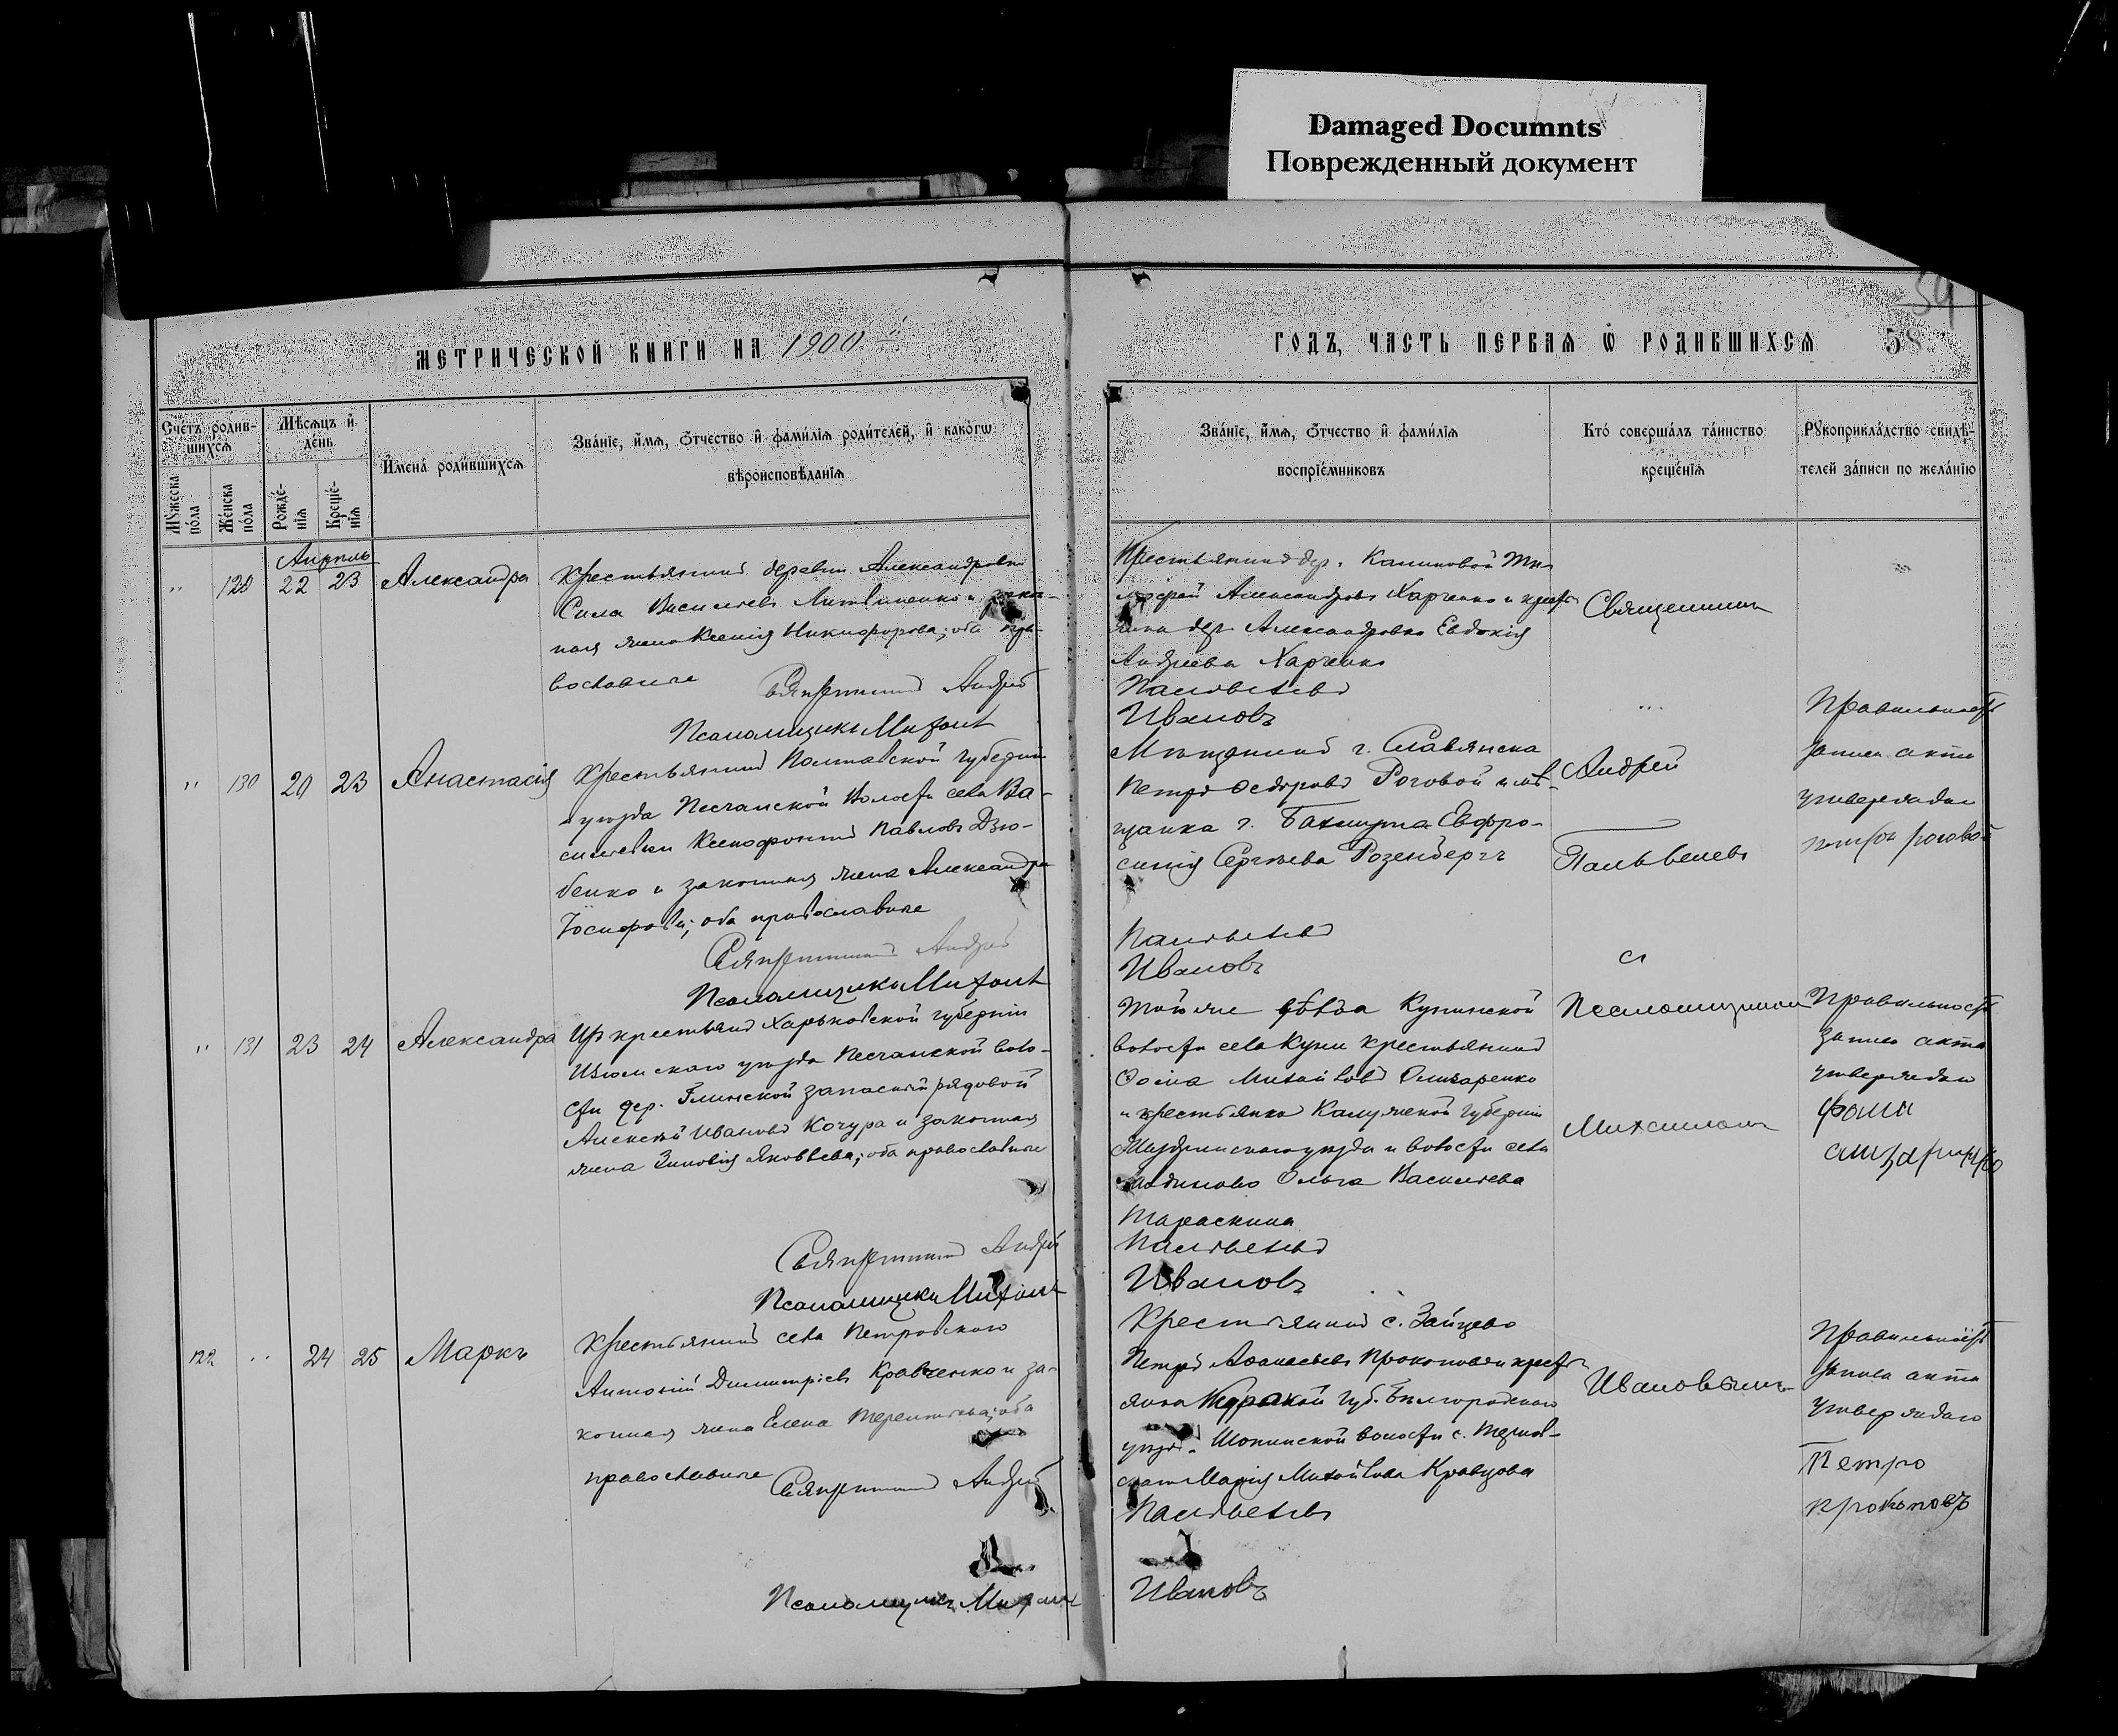 Damaged Documnts
Поврежденный документ
59
МЕТРИЧЕСКОЙ КНИГИ НА 1900 й
ГОДЪ, ЧАСТЬ ПЕРВАЯ Ѡ РОДИВШИХСЯ 58
Счетъ родив-
шихся
Мѣсяцъ и
день
Мужеска
пола
Женска
пола
Рожде-
нія
Креще-
нія
Имена родившихся
Званіе, имя, отчество и фамилія родителей, и какогѡ
вѣроисповѣданія
Званіе, имя, отчество и фамилія
воспріемниковъ
Кто совершалъ таинство
крещенія
Рукоприкладство свидѣ-
телей записи по желанію
Апрѣль
" 129 22 23 Александра
Крестьянинъ деревни Александровки
Сила Васильевъ Литвиненко и закон-
ная жена Ксенія Никифорова; оба пра-
вославные
Священникъ Андрей
Псаломщикъ Михаилъ
Крестьянинъ дер. Калиновой Ти-
мофей Александровъ Харченко и кресть-
янка дер. Александровки Евдокія
Андреева Харченко
Пальвелевъ
Ивановъ
Священникъ
" 130 20 23 Анастасія
Крестьянинъ Полтавской губерніи
и уѣзда Песчанской волости села Ва-
сильевки Ксенофонтъ Павловъ Дзю-
бенко и законная жена Александра
Іосифова; оба православные
Священникъ Андрей
Псаломщикъ Михаилъ
Мѣщанинъ г. Славянска
Петръ Ѳедоровъ Роговой и мѣ-
щанка г. Бахмута Евфро-
синія Сергѣева Розенбергъ
Пальвелевъ
Ивановъ
Андрей
Пальвелевъ
Правильность
записи акта
утверждаю
Роговой
" 131 23 24 Александра
Изъ крестьянъ Харьковской губерніи
Изюмскаго уѣзда Песчанской воло-
сти дер. Глинской запасный рядовой
Алексѣй Ивановъ Кочура и законная
жена Зиновія Яковлева; оба православные
Священникъ Андрей
Псаломщикъ Михаилъ
Той же уѣзда Купинской
волости села Купи крестьянинъ
Ѳома Михайловъ Слизаренко
и крестьянка Калужской губерніи
Жиздринскаго уѣзда и волости села
Ольга Васильева
Тараскина
Пальвелевъ
Ивановъ
с
Псаломщикомъ
Михаиломъ
Правильность
записи акта
утверждаю
Фома
122 " 24 25 Маркъ
Крестьянинъ села Петровскаго
Антоній Димитріевъ Кравченко и за-
конная жена Елена Терентьева; оба
православные
Священникъ Андрей
Псаломщикъ Михаилъ
Крестьянинъ с. Зайцево
Петръ Аѳанасьевъ Прокоповъ и кресть-
янка Курской губ. Бѣлгородскаго
уѣзда Шопинской волости с. Тернов-
Марія Михайлова Кравцова
Пальвелевъ
Ивановъ
Ивановымъ
Правильность
записи акта
утверждаю
Петро
Прокоповъ